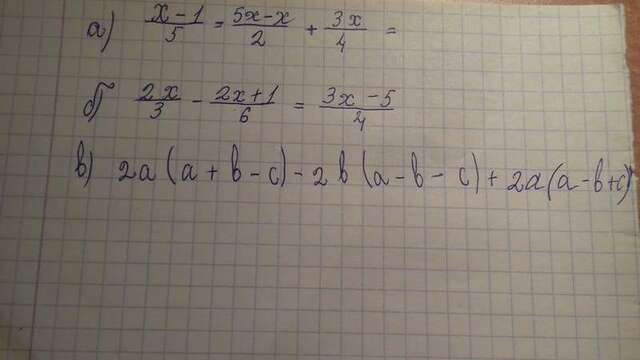 а) (x-1)/5 = (5x-x)/2 + 3x/4 =
б) 2x/3 - (2x+1)/6 = (3x-5)/4
в) 2a(a+b-c)-2b(a-b-c)+2a(a-b+c)